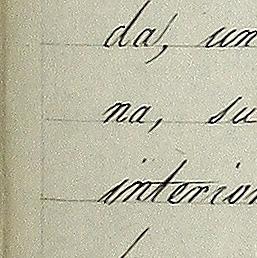 da, un
na, su
interior